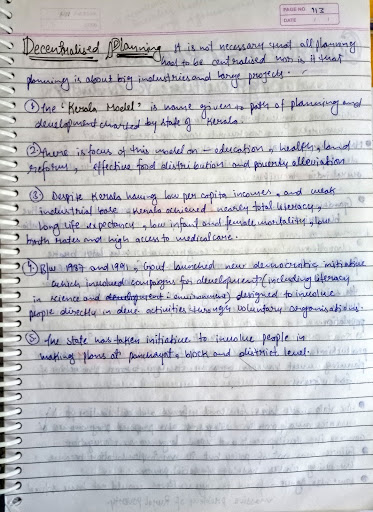 PAGE NO. 113
DATE
Decentralised Planning It is not necessary that all planning
had to be centralised nor is it that
planning is about big industries and large projects.
① The "Kerala Model" is name given to path of planning and
development charted by state of Kerala.
② There is focus of this model on - education, health, land
reform, effective food distribution and poverty alleviation
③ Despite Kerala having low per capita incomes, and weak
industrial base Kerala achieved nearly total literacy,
long life expectancy, low infant and female mortality, low
birth rates and high access to medical care.
④ B/w 1987 and 1991, Govt launched new democratic initiative
which involved campaigns for development (including literacy
in science and environment) designed to involve
people directly in deve. activities through voluntary organisations.
⑤ The state has taken initiative to involve people in
making plans at panchayat, block and district level.